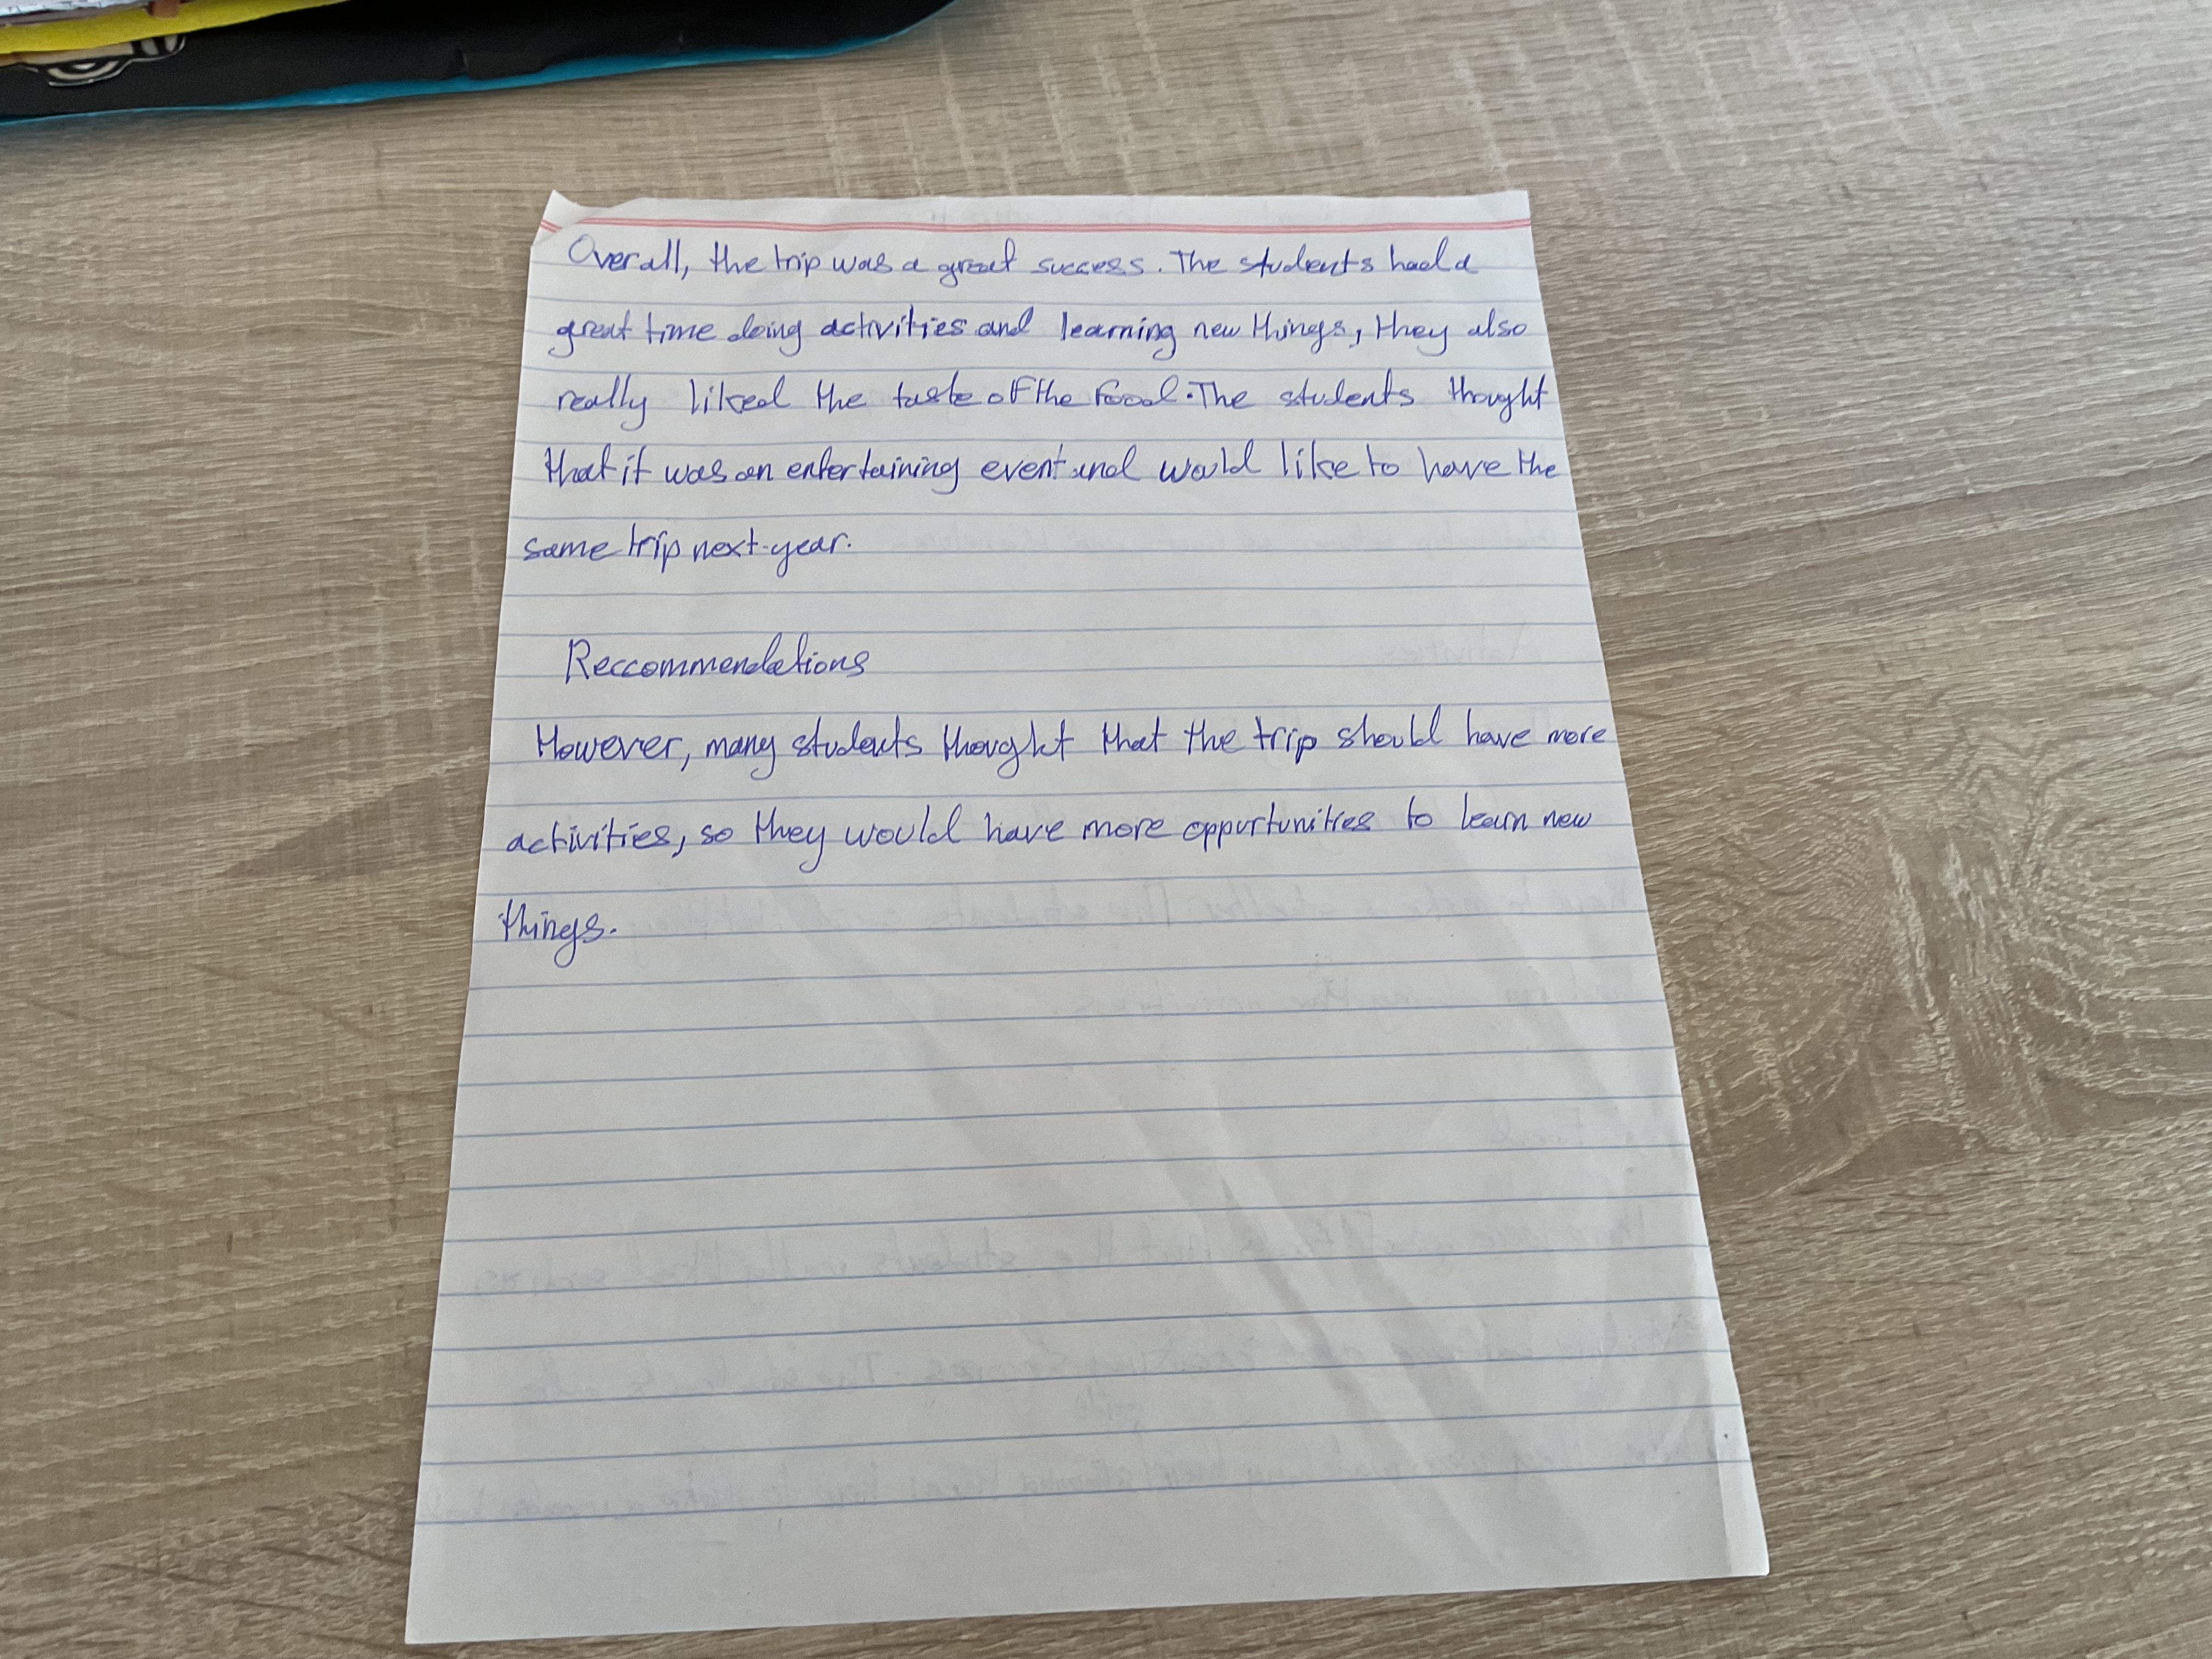 Overall, the trip was a great success. The students had a
great time doing activities and learning new things, they also
really liked the taste of the food. The students thought
that it was an entertaining event and would like to have the
same trip next year.
Reccommendations
However, many students thought that the trip should have more
activities, so they would have more oppurtunities to learn new
things.